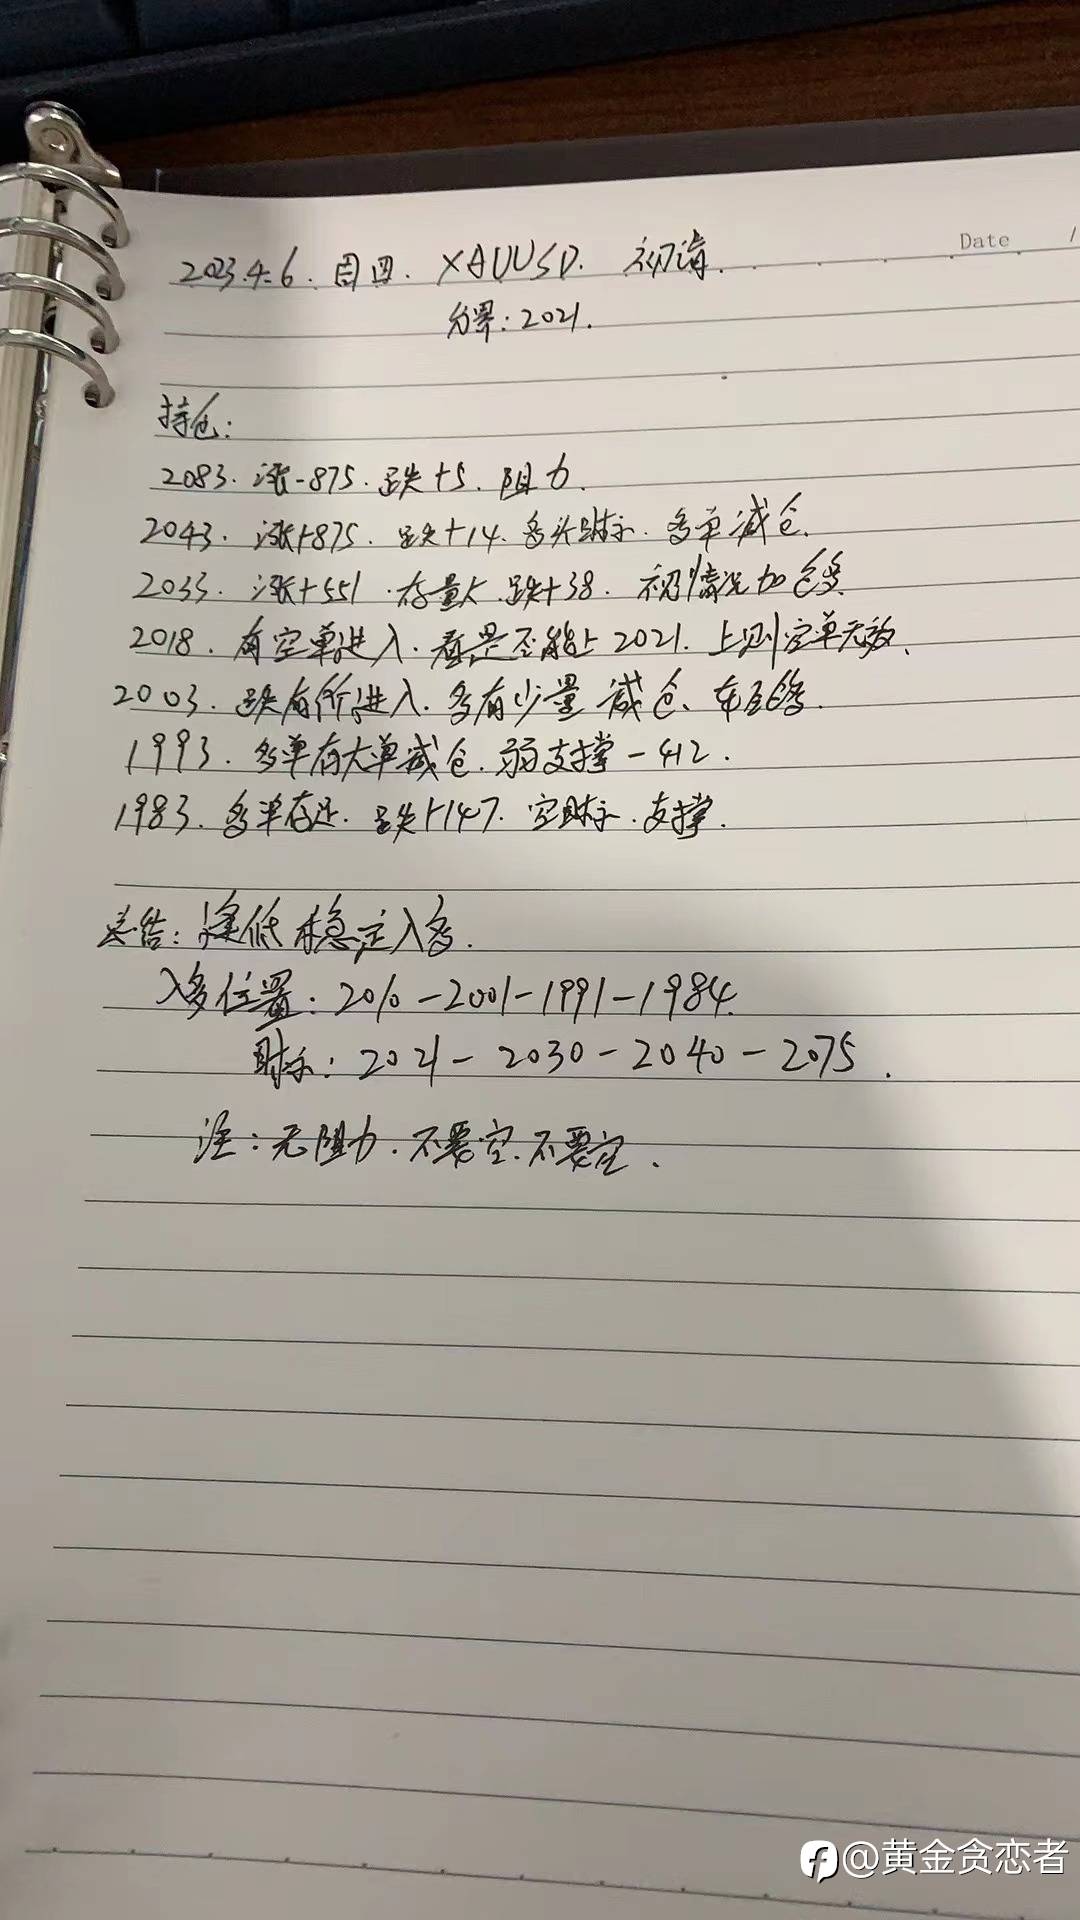 Date
2023.4.6. 周四. XAUUSD. 初请.
分界: 2021.
持仓:
2083. 涨-875. 跌+5. 阻力.
2043. 涨+875. 跌+14. 多头财示. 多单减仓.
2033. 涨+551. 存量大 跌+38. 视情况加仓多
2018. 有空单进入. 看是否能上2021. 上则空单无效.
2003. 跌有价进入. 多有少量减仓.
1993. 多单有大单减仓. 弱支撑-412.
1983. 多单存还. 跌+147. 空财示. 支撑.
总结: 逢低稳定入多.
入多位置: 2010-2001-1991-1984.
财示: 2021-2030-2040-2075.
注: 无阻力. 不要空. 不要空.
@黄金贪恋者